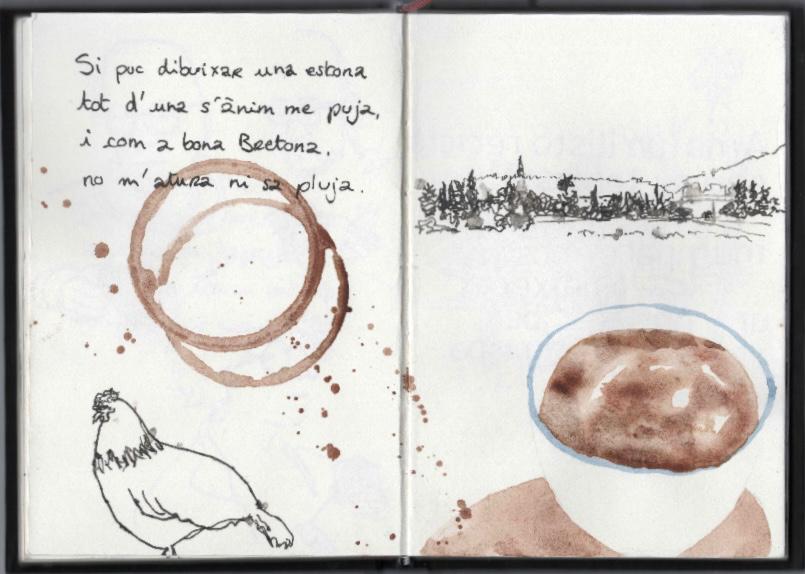 Si puc dibuixar una estona
tot d'una s'ànim me puja,
i com a bona Bretona,
no m'atura ni sa pluja.